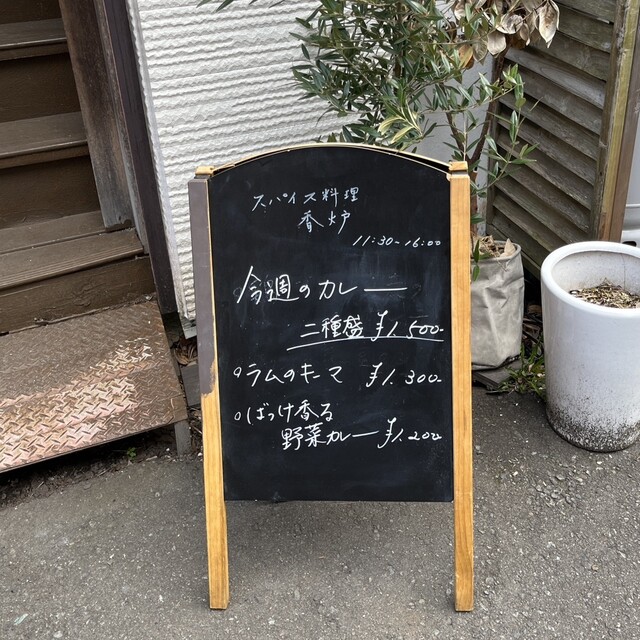 スパイス料理
香炉
11:30-16:00
今週のカレー
二種盛 ¥1,500-
○ラムのキーマ ¥1,300-
○ばっけ香る
野菜カレー ¥1,200-